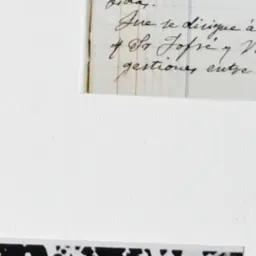 Que se dirigue á
y Sr Jofré y V
gestiones entre